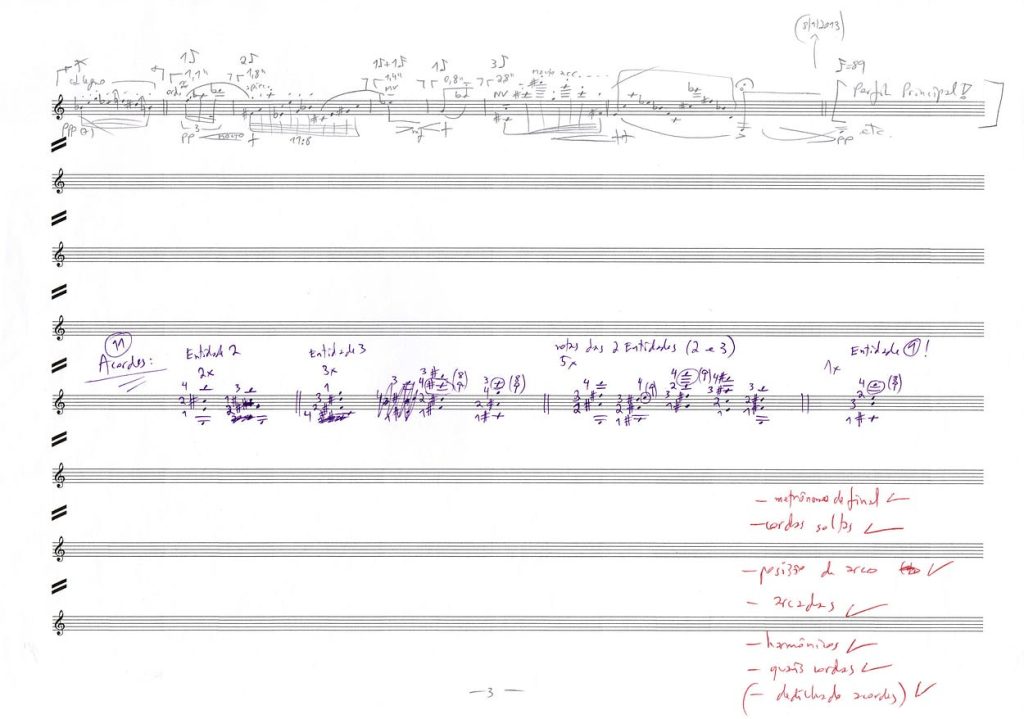 (5/1/2013)
♪=89
1♪ 2♪ 1♪+1♪ 1♪ 3♪
col legno 1,1" 1,8" 1,4" 0,8" 2,8" novo arc.
ord. spicc. nv nv
[Perfil Principal!]
ppp pp 3 f 11:8 mf f ff pp etc.
11
Acordes:
Entidade 2
2x
Entidade 3
3x
notas das 2 Entidades (2 e 3)
5x
Entidade 1!
1x
- metrônomo de final ✓
- cordas soltas ✓
- posição de arco ✓
- arcadas ✓
- harmônicos ✓
- quais cordas ✓
(- dedilhado acordes) ✓
— 3 —